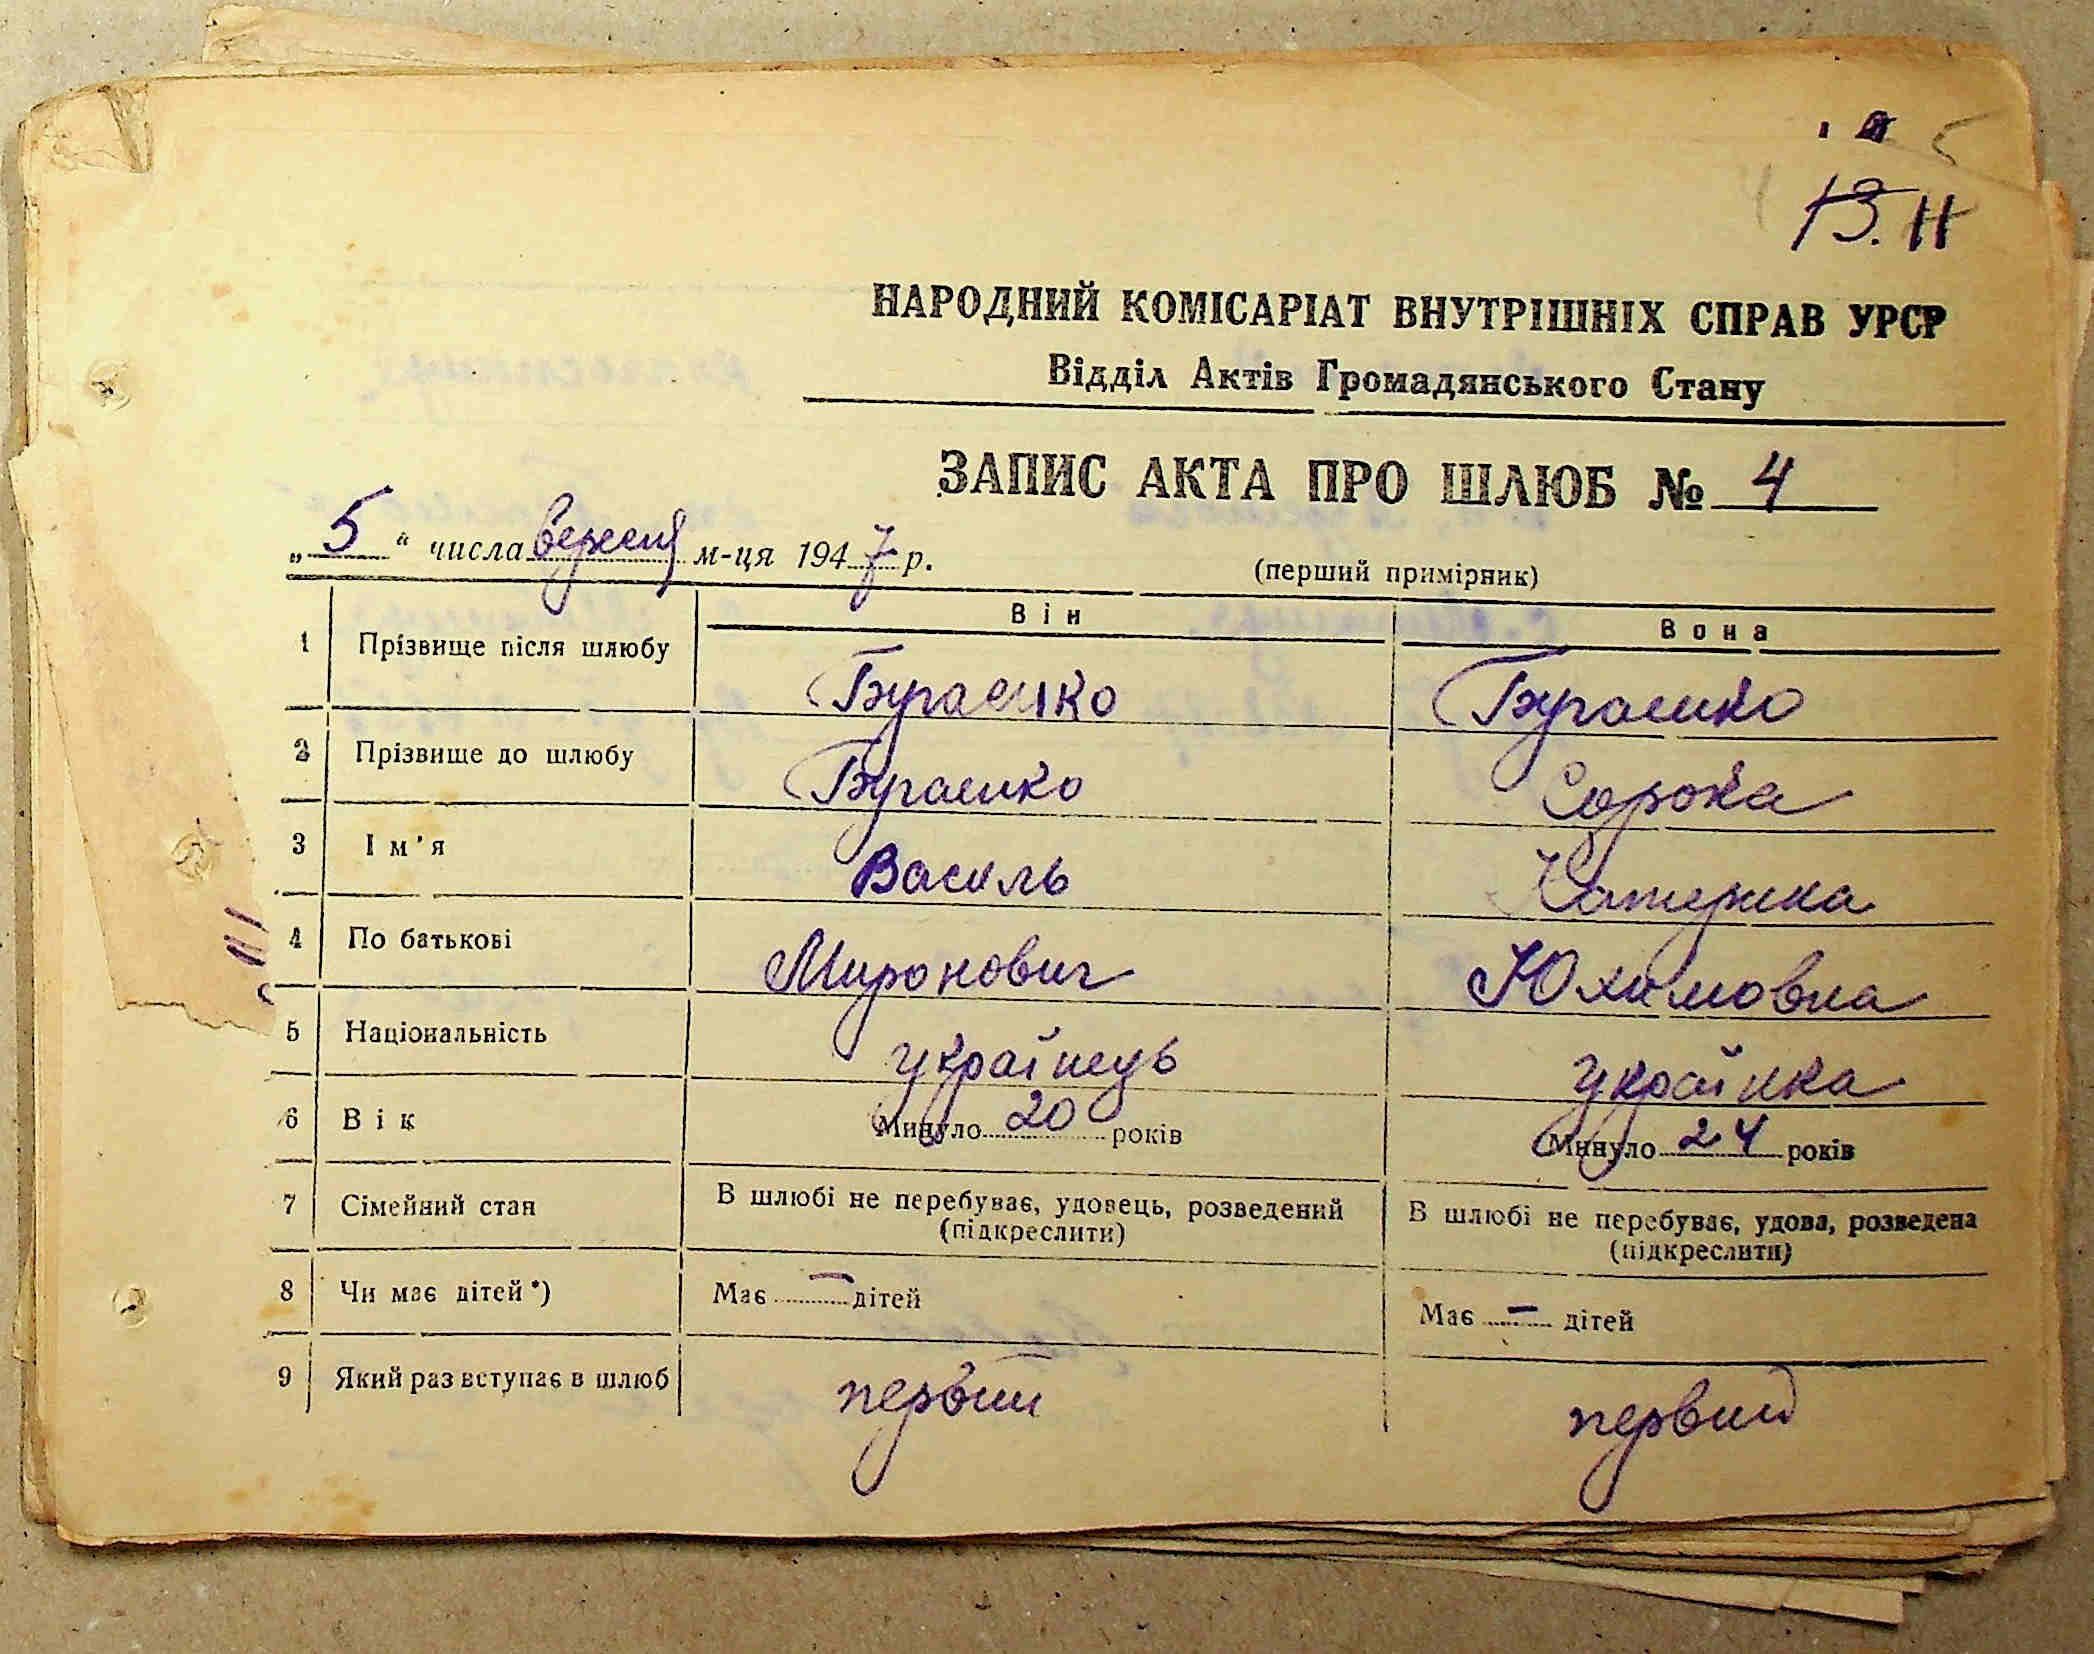 13. 11
НАРОДНИЙ КОМІСАРІАТ ВНУТРІШНІХ СПРАВ УРСР
Відділ Актів Громадянського Стану
ЗАПИС АКТА ПРО ШЛЮБ № 4
„5“ числа вересня м-ця 1947 р.
(перший примірник)
Він Вона
1 Прізвище після шлюбу Бугаенко Бугаенко
2 Прізвище до шлюбу Бугаенко Сорока
3 Ім'я Василь Катерина
4 По батькові Миронович Юхимовна
5 Національність українець українка
6 Вік Минуло 20 років Минуло 24 років
7 Сімейний стан В шлюбі не перебуває, удовець, розведений (підкреслити) В шлюбі не перебуває, удова, розведена (підкреслити)
8 Чи має дітей*) Має — дітей Має — дітей
9 Який раз вступає в шлюб первий первий